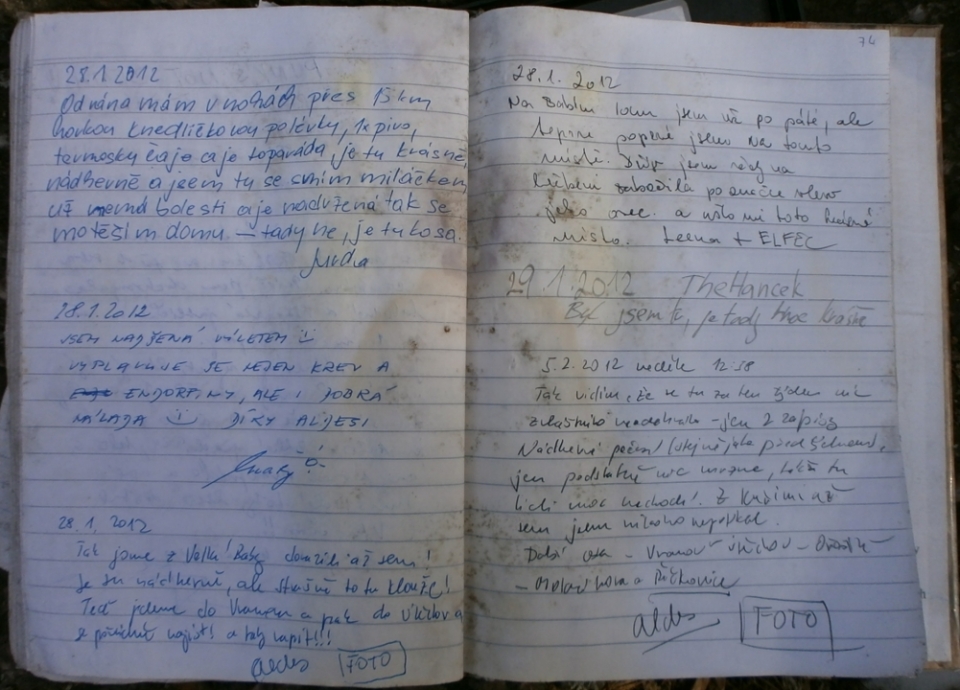 28.1.2012
Od rána mám v nohách přes 15km
horkou knedlíčkovou polévku, 1x pivo,
termosky čaje a je to paráda, je tu krásně,
nádherně a jsem tu se svým miláčkem
už nemá bolesti a je nadržená tak se
těším domů – tady ne, je tu kosa.
28.1.2012
JSEM NADŠENÁ VÝLETEM
VYPLAVUJE SE NEJEN KREV A
ENDORFINY, ALE I DOBRÁ
NÁLADA DÍKY ALDESI
28.1.2012
Tak jsme z Velké Baby dorazili až sem!
Je tu nádherně, ale strašně to tu klouže!
Teď jdeme do Vranova a pak do Útěchova
se pořádně najíst! a taky napít!!!
aldes FOTO
74
28.1.2012
Na Babím lomu jsem už po páté, ale
teprve poprvé jsem na tomto
místě. Vždy jsem
zabočila po značce vlevo
jako ovce. a ušlo mi toto
místo. Leena + ELFEC
29.1.2012 TheHancek
Byl jsem tu, je tady moc krásně
5.2.2012 neděle 12:38
Tak vidím, že se tu za ten týden nic
zvláštního neodehrálo – jen 2 zápisy
Nádherné počasí (stejně jako před týdnem),
jen podstatně víc mrzne, takže tu
lidi moc nechodí! Z
sem jsem nikoho nepotkal.
Další cesta – Vranov – Útěchov –
– Mokrá hora a Řečkovice
aldes FOTO